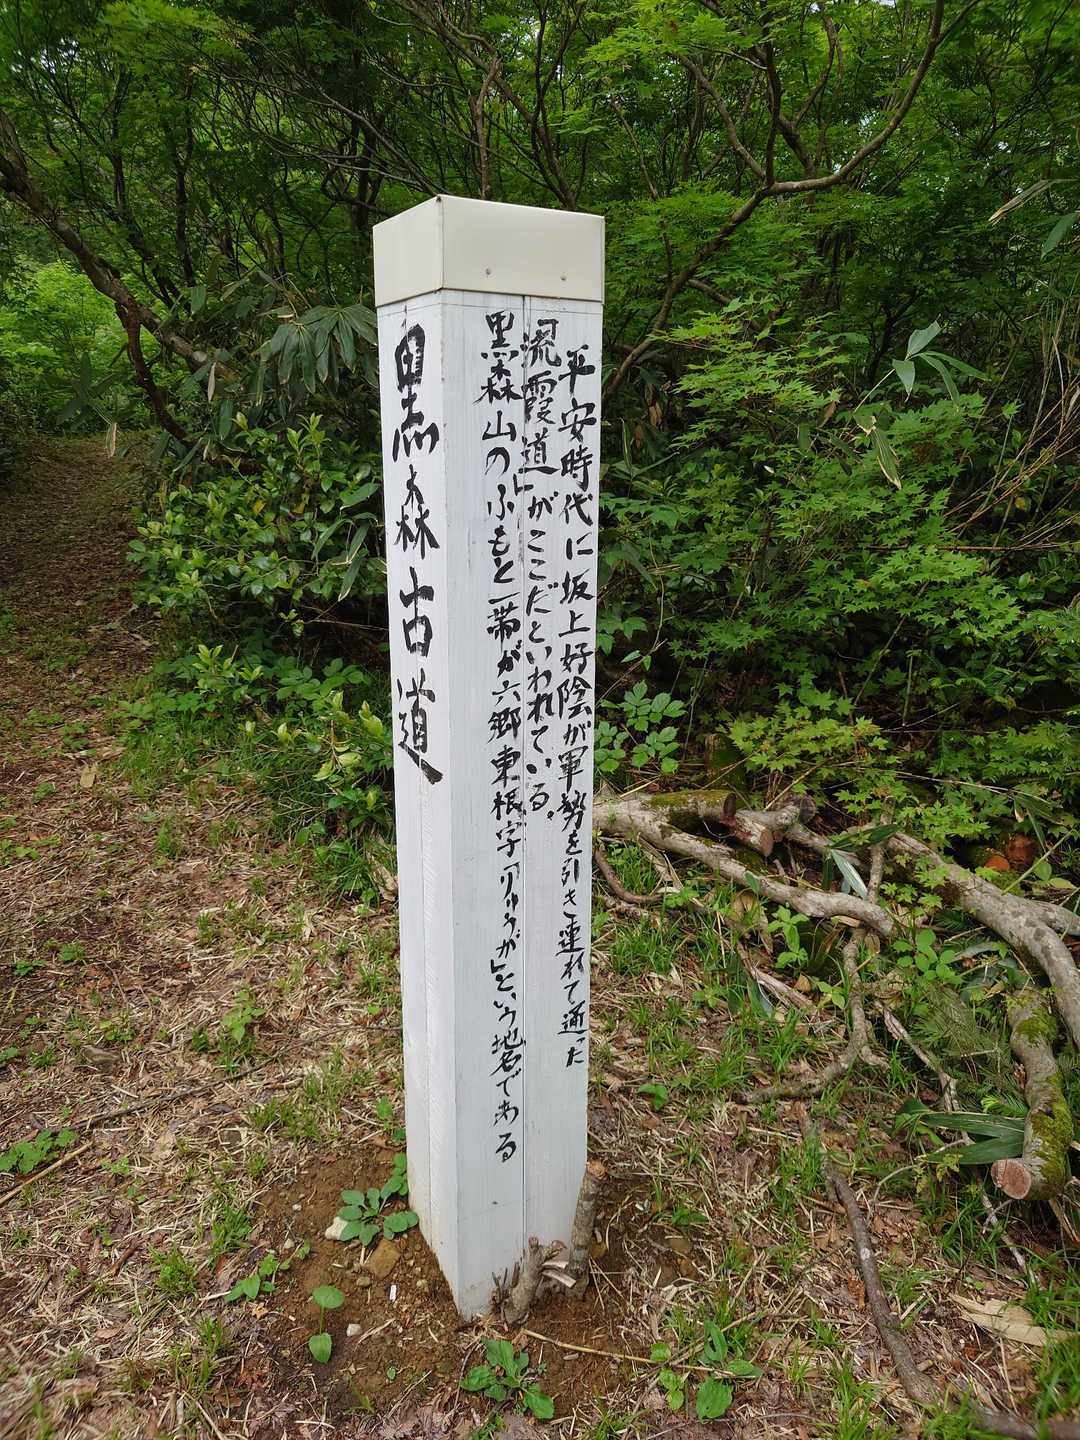 黒森古道
平安時代に坂上好陰が軍勢を引き連れて通った
「流霞道」がここだといわれている。
黒森山のふもと一帯が六郷東根字「りゅうが」という地名である